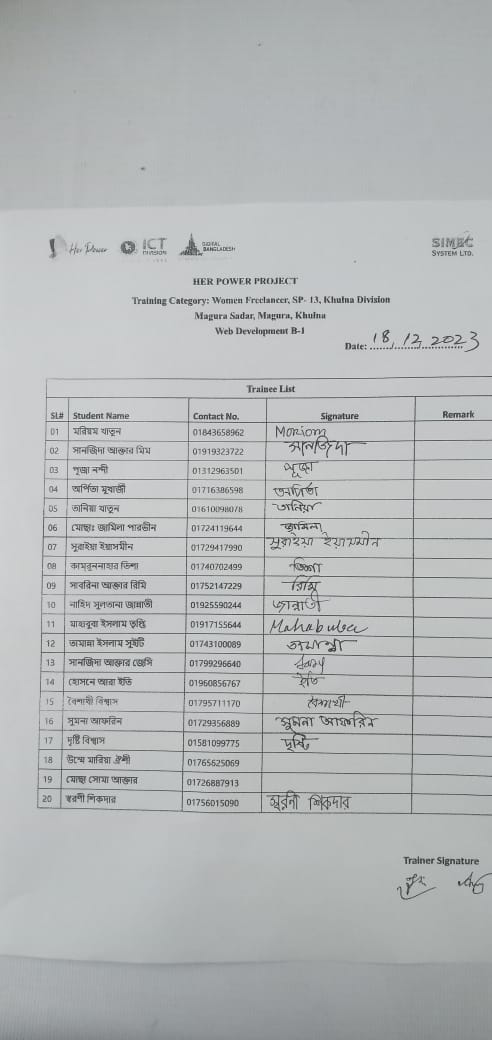 Her Power
ICT DIVISION
DIGITAL BANGLADESH
SIMEC SYSTEM LTD.
HER POWER PROJECT
Training Category: Women Freelancer, SP- 13, Khulna Division
Magura Sadar, Magura, Khulna
Web Development B-1
Date: 18, 12, 2023
Trainee List
SL# Student Name Contact No. Signature Remark
01 মরিয়ম খাতুন 01843658962 Moriom
02 সানজিদা আক্তার মিম 01919323722 সানজিদা
03 পূজা নন্দী 01312963501 পূজা
04 অর্পিতা মুখার্জী 01716386598 অর্পিতা
05 তানিয়া খাতুন 01610098078 তানিয়া
06 মোছাঃ জামিলা পারভীন 01724119644 জামিলা
07 সুরাইয়া ইয়াসমীন 01729417990 সুরাইয়া ইয়াসমীন
08 কামরুননাহার তিশা 01740702499 তিশা
09 সাবরিনা আক্তার রিমি 01752147229 রিমি
10 নাহিদ সুলতানা জান্নাতী 01925590244 জান্নাতী
11 মাহাবুবা ইসলাম তৃপ্তি 01917155644 Mahabuba
12 তামান্না ইসলাম সুইটি 01743100089 তামান্না
13 সানজিদা আক্তার জেসি 01799296640
14 হোসনে আরা ইতি 01960856767 ইতি
15 বৈশাখী বিশ্বাস 01795711170 বৈশাখী
16 সুমনা আফরিন 01729356889 সুমনা আফরিন
17 দৃষ্টি বিশ্বাস 01581099775 দৃষ্টি
18 উম্মে মারিয়া ঐশী 01765625069
19 মোছা সোমা আক্তার 01726887913
20 স্বরণী শিকদার 01756015090 স্বরনী শিকদার
Trainer Signature